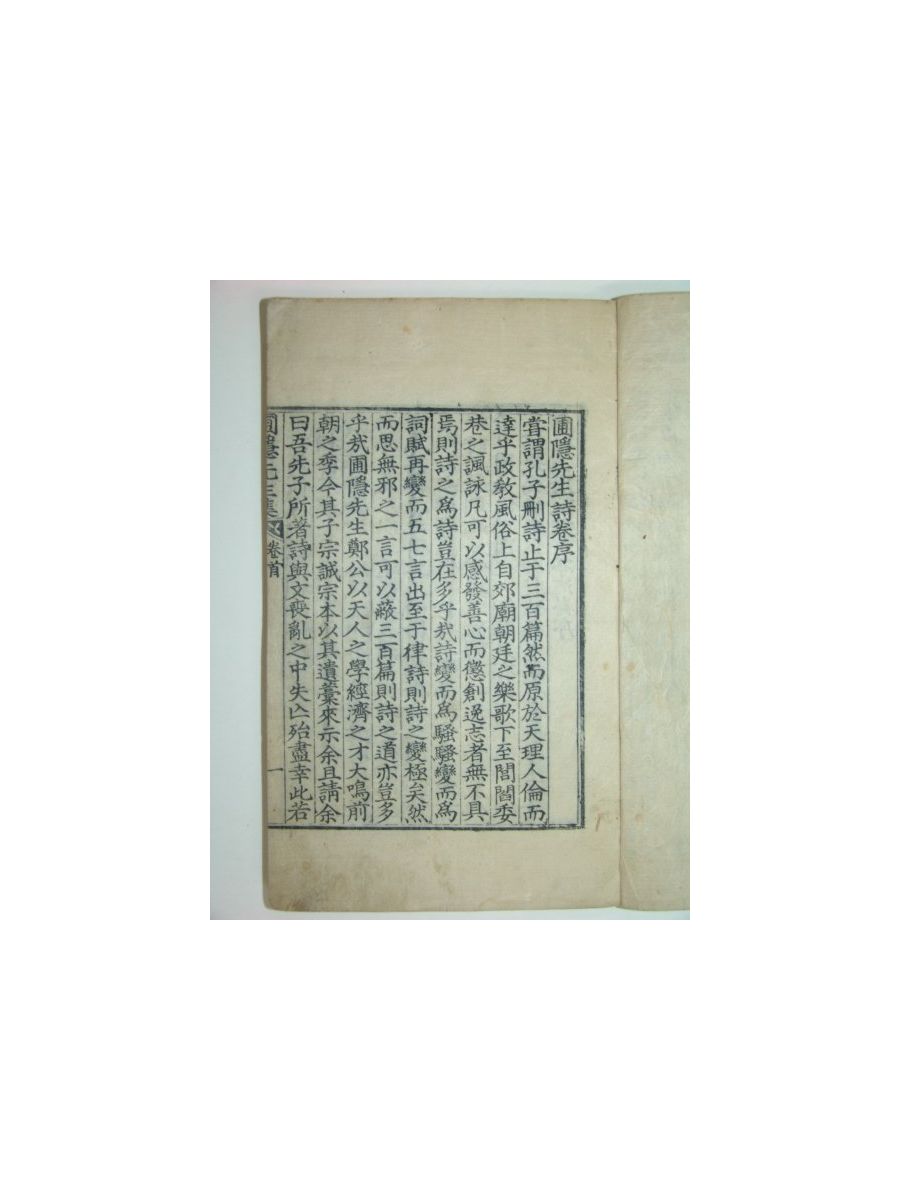 圃隱先生詩卷序
嘗謂孔子刪詩止于三百篇然而原於天理人倫而
達乎政敎風俗上自郊廟朝廷之樂歌下至閭閻委
巷之諷詠凡可以感發善心而懲創逸志者無不具
焉則詩之爲詩豈在多乎㢤詩變而爲騷騷變而爲
詞賦再變而五七言出至于律詩則詩之變極矣然
而思無邪之一言可以蔽三百篇則詩之道亦豈多
乎㢤圃隱先生鄭公以天人之學經濟之才大鳴前
朝之季今其子宗誠宗本以其遺藁來示余且請余
曰吾先子所著詩與文喪亂之中失亾殆盡幸此若
圃隱先生集 卷首 一